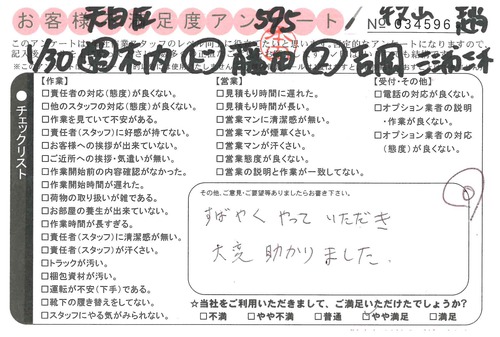 お客様満足度アンケート
№034596
天白区 595 杁山 瑞
このアンケートは
1/30
チェックリスト
【作業】
□責任者の対応(態度)が良くない。
□他のスタッフの対応(態度)が良くない。
□作業を見ていて不安がある。
□責任者(スタッフ)に好感が持てない。
□お客様への挨拶が出来ていない。
□ご近所への挨拶・気遣いが無い。
□作業開始前の内容確認がなかった。
□作業開始時間が遅れた。
□荷物の取り扱いが雑である。
□お部屋の養生が出来ていない。
□作業時間が長すぎる。
□責任者(スタッフ)に清潔感が無い。
□責任者(スタッフ)が汗くさい。
□トラックが汚い。
□梱包資材が汚い。
□運転が不安(下手)である。
□靴下の履き替えをしてない。
□スタッフにやる気がみられない。
【営業】
□見積もり時間に遅れた。
□見積もり時間が長い。
□営業マンに清潔感が無い。
□営業マンが煙草くさい。
□営業マンが汗くさい。
□営業態度が良くない。
□営業の説明と作業が一致してない。
【受付・その他】
□電話の対応が良くない。
□オプション業者の説明
・作業が良くない。
□オプション業者の対応
(態度)が良くない。
その他、ご意見・ご要望等ありましたらお書き下さい。
すばやく やって いただき
大変 助かり ました.
☆当社をご利用いただきまして、ご満足いただけたでしょうか?
□不満 □やや不満 □普通 □やや満足 □満足